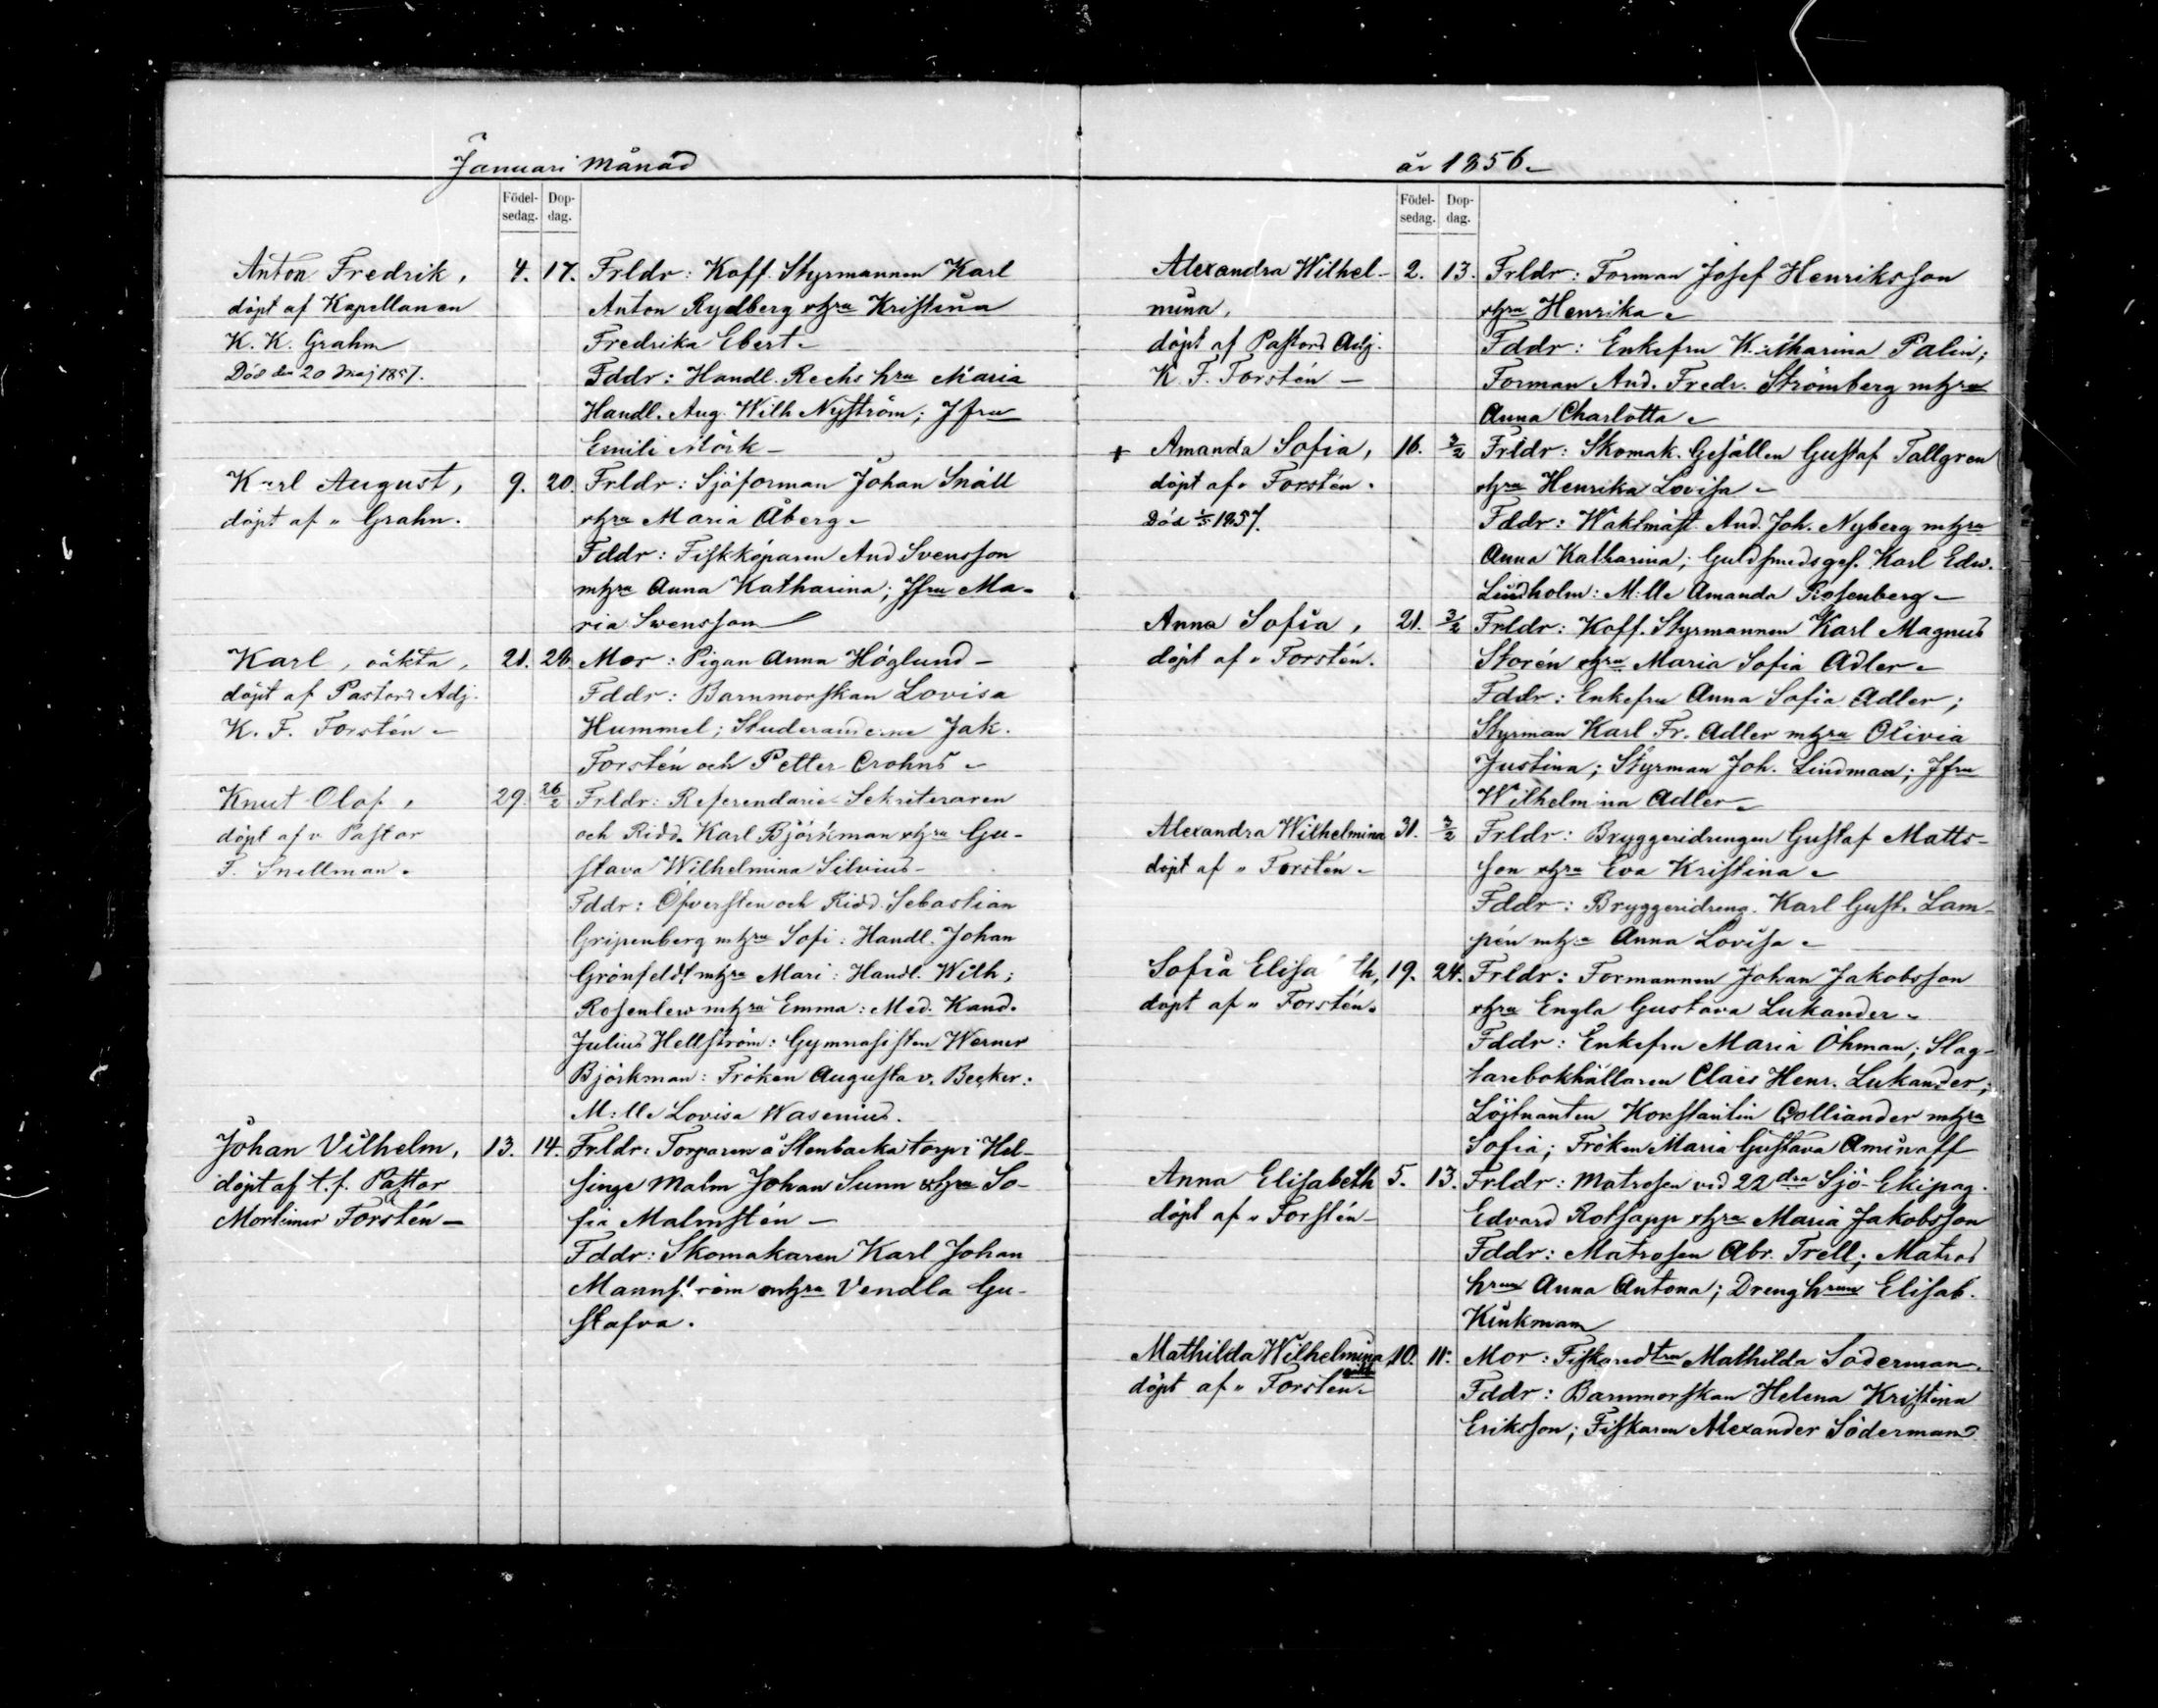 Januari månad
Födel-
sedag.
Dop-
dag.
Anton Fredrik,
döpt af Kapellanen
K. K. Grahn
Död den 20 Maj 1857.
4. 17.
Frldr: Koff. Styrmannen Karl
Anton Rydberg o hru Kristina
Fredrika Ebert.
Fddr: Handl. Rechs hru Maria
Handl. Aug. Wilh Nyström; Jfru
Emili Mörk
Karl August,
döpt af " Grahn.
9. 20.
Frldr: Sjöforman Johan Snäll
o hru Maria Åberg
Fddr: Fiskköparen And Svensson
m hru Anna Katharina; Jfru Ma-
ria Swensson
Karl, oäkta,
döpt af Pastors Adj.
K. F. Forstén
21. 26
Mor: Pigan Anna Höglund
Fddr: Barnmorskan Lovisa
Hummel; Studeranderne Jak.
Forstén och Petter Crohns
Knut Olof,
döpt af v. Pastor
F. Snellman.
29. 26/2
Frldr: Referendarie Sekreteraren
och Ridd. Karl Björkman o hru Gu-
stava Wilhelmina Silvius
Fddr: Öfversten och Ridd. Sebastian
Gripenberg m hru Sofi: Handl. Johan
Grönfeldt m hru Mari: Handl. Wilh:
Rosenlew m hru Emma: Med. Kand.
Julius Hellström: Gymnasisten Werner
Björkman: Fröken Augusta v. Becker:
M:lle Lovisa Wasenius.
Johan Vilhelm,
döpt af t. f. Pastor
Mortimer Forstén
13. 14.
Frldr: Torparen å Stenbacka torp i Hel-
singe Malm Johan Sunn o hru So-
fia Malmstén
Fddr: Skomakaren Karl Johan
Mannström m hru Vendla Gu-
stafva.
år 1856
Födel-
sedag.
Dop-
dag.
Alexandra Wilhel-
mina,
döpt af Pastors Adj.
K. F. Forstén
2. 13.
Frldr: Forman Josef Henriksson
o hru Henrika
Fddr: Enkefru Katharina Palin;
Forman And. Fredr. Strömberg m hru
Anna Charlotta
+ Amanda Sofia,
döpt af " Forstén.
Död 1/5 1857.
16. 3/2
Frldr: Skomak. Gesällen Gustaf Tallgren
o hru Henrika Lovisa
Fddr: Waktmäst. And. Joh. Nyberg m hru
Anna Katharina; Guldsmedsges. Karl Edw.
Lindholm: M:lle Amanda Rosenberg
Anna Sofia,
döpt af " Forstén.
21. 3/2
Frldr: Koff. Styrmannen Karl Magnus
Storén o hru Maria Sofia Adler
Fddr: Enkefru Anna Sofia Adler;
Styrman Karl Fr. Adler m hru Olivia
Justina; Styrman Joh. Lindman; Jfru
Wilhelmina Adler
Alexandra Wilhelmina
döpt af " Forstén
31. 3/2
Frldr: Bryggeridrengen Gustaf Matts-
son o hru Eva Kristina
Fddr: Bryggeridreng. Karl Gust. Lam-
pén m hru Anna Lovisa
Sofia Elisa th,
döpt af " Forstén.
19. 24.
Frldr: Formannen Johan Jakobsson
o hru Engla Gustava Lukander
Fddr: Enkefru Maria Öhman; Slag-
tarebokhållaren Claës Henr. Lukander;
Löjtnanten Konstantin Colliander m hru
Sofia; Fröken Maria Gustava Aminoff
Anna Elisabeth
döpt af " Forstén
5. 13.
Frldr: Matrosen vid 22dra Sjö-Ekipag.
Edvard Rotsapp o hru Maria Jakobsson
Fddr: Matrosen Abr. Trell; Matros
hrun Anna Antona; Dreng hrun Elisab.
Kinkmann
Mathilda Wilhelmina
döpt af " Forstén
10. 11.
Mor: Fiskaredtrn Mathilda Söderman
Fddr: Barnmorskan Helena Kristina
Eriksson; Fiskaren Alexander Söderman